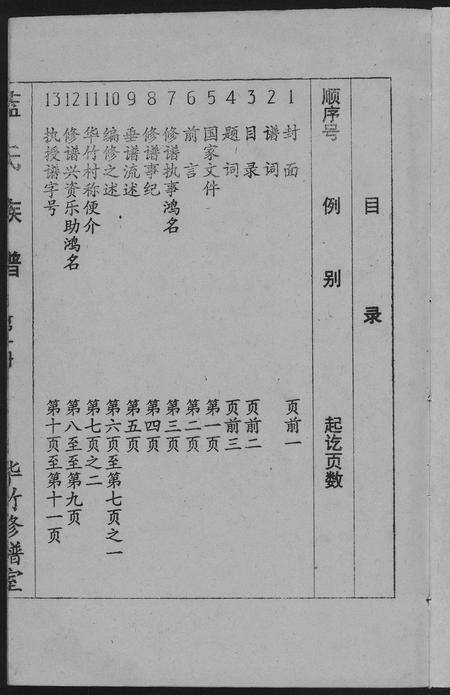 目录
顺序号 例别 起讫页数
1 封面 页前一
2 谱词
3 目录 页前二
4 题词 页前三
5 国家文件 第一页
6 前言 第二页
7 修谱执事鸿名 第三页
8 修谱事纪 第四页
9 垂谱流述 第五页
10 编修之述 第六页至第七页之一
11 华竹村称便介 第七页之二
12 修谱兴资乐助鸿名 第八至至第九页
13 执授谱字号 第十页至第十一页
蓝氏族谱 华竹修谱室